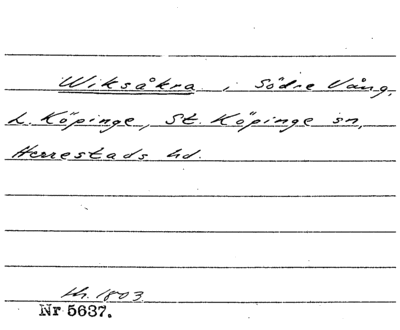 Wiksåkra i Södre Vång,
L. Köpinge, St. Köpinge sn,
Herrestads hd.
1803
Nr 5637.